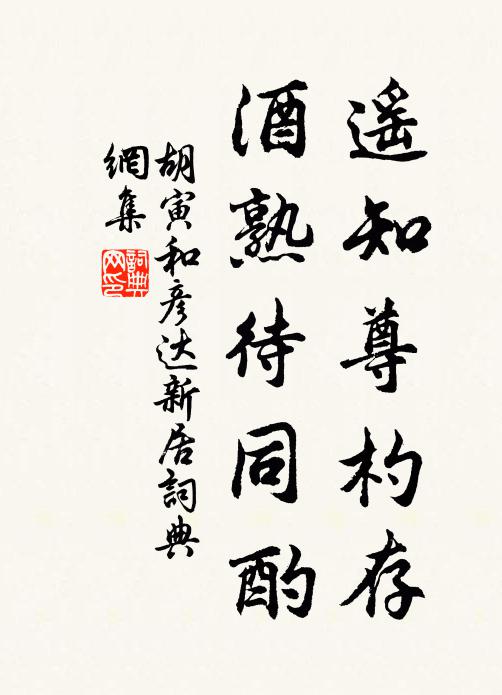 遥知尊杓存
酒熟待同酌
胡寅和彦达新居詞典
網集
詞典网印